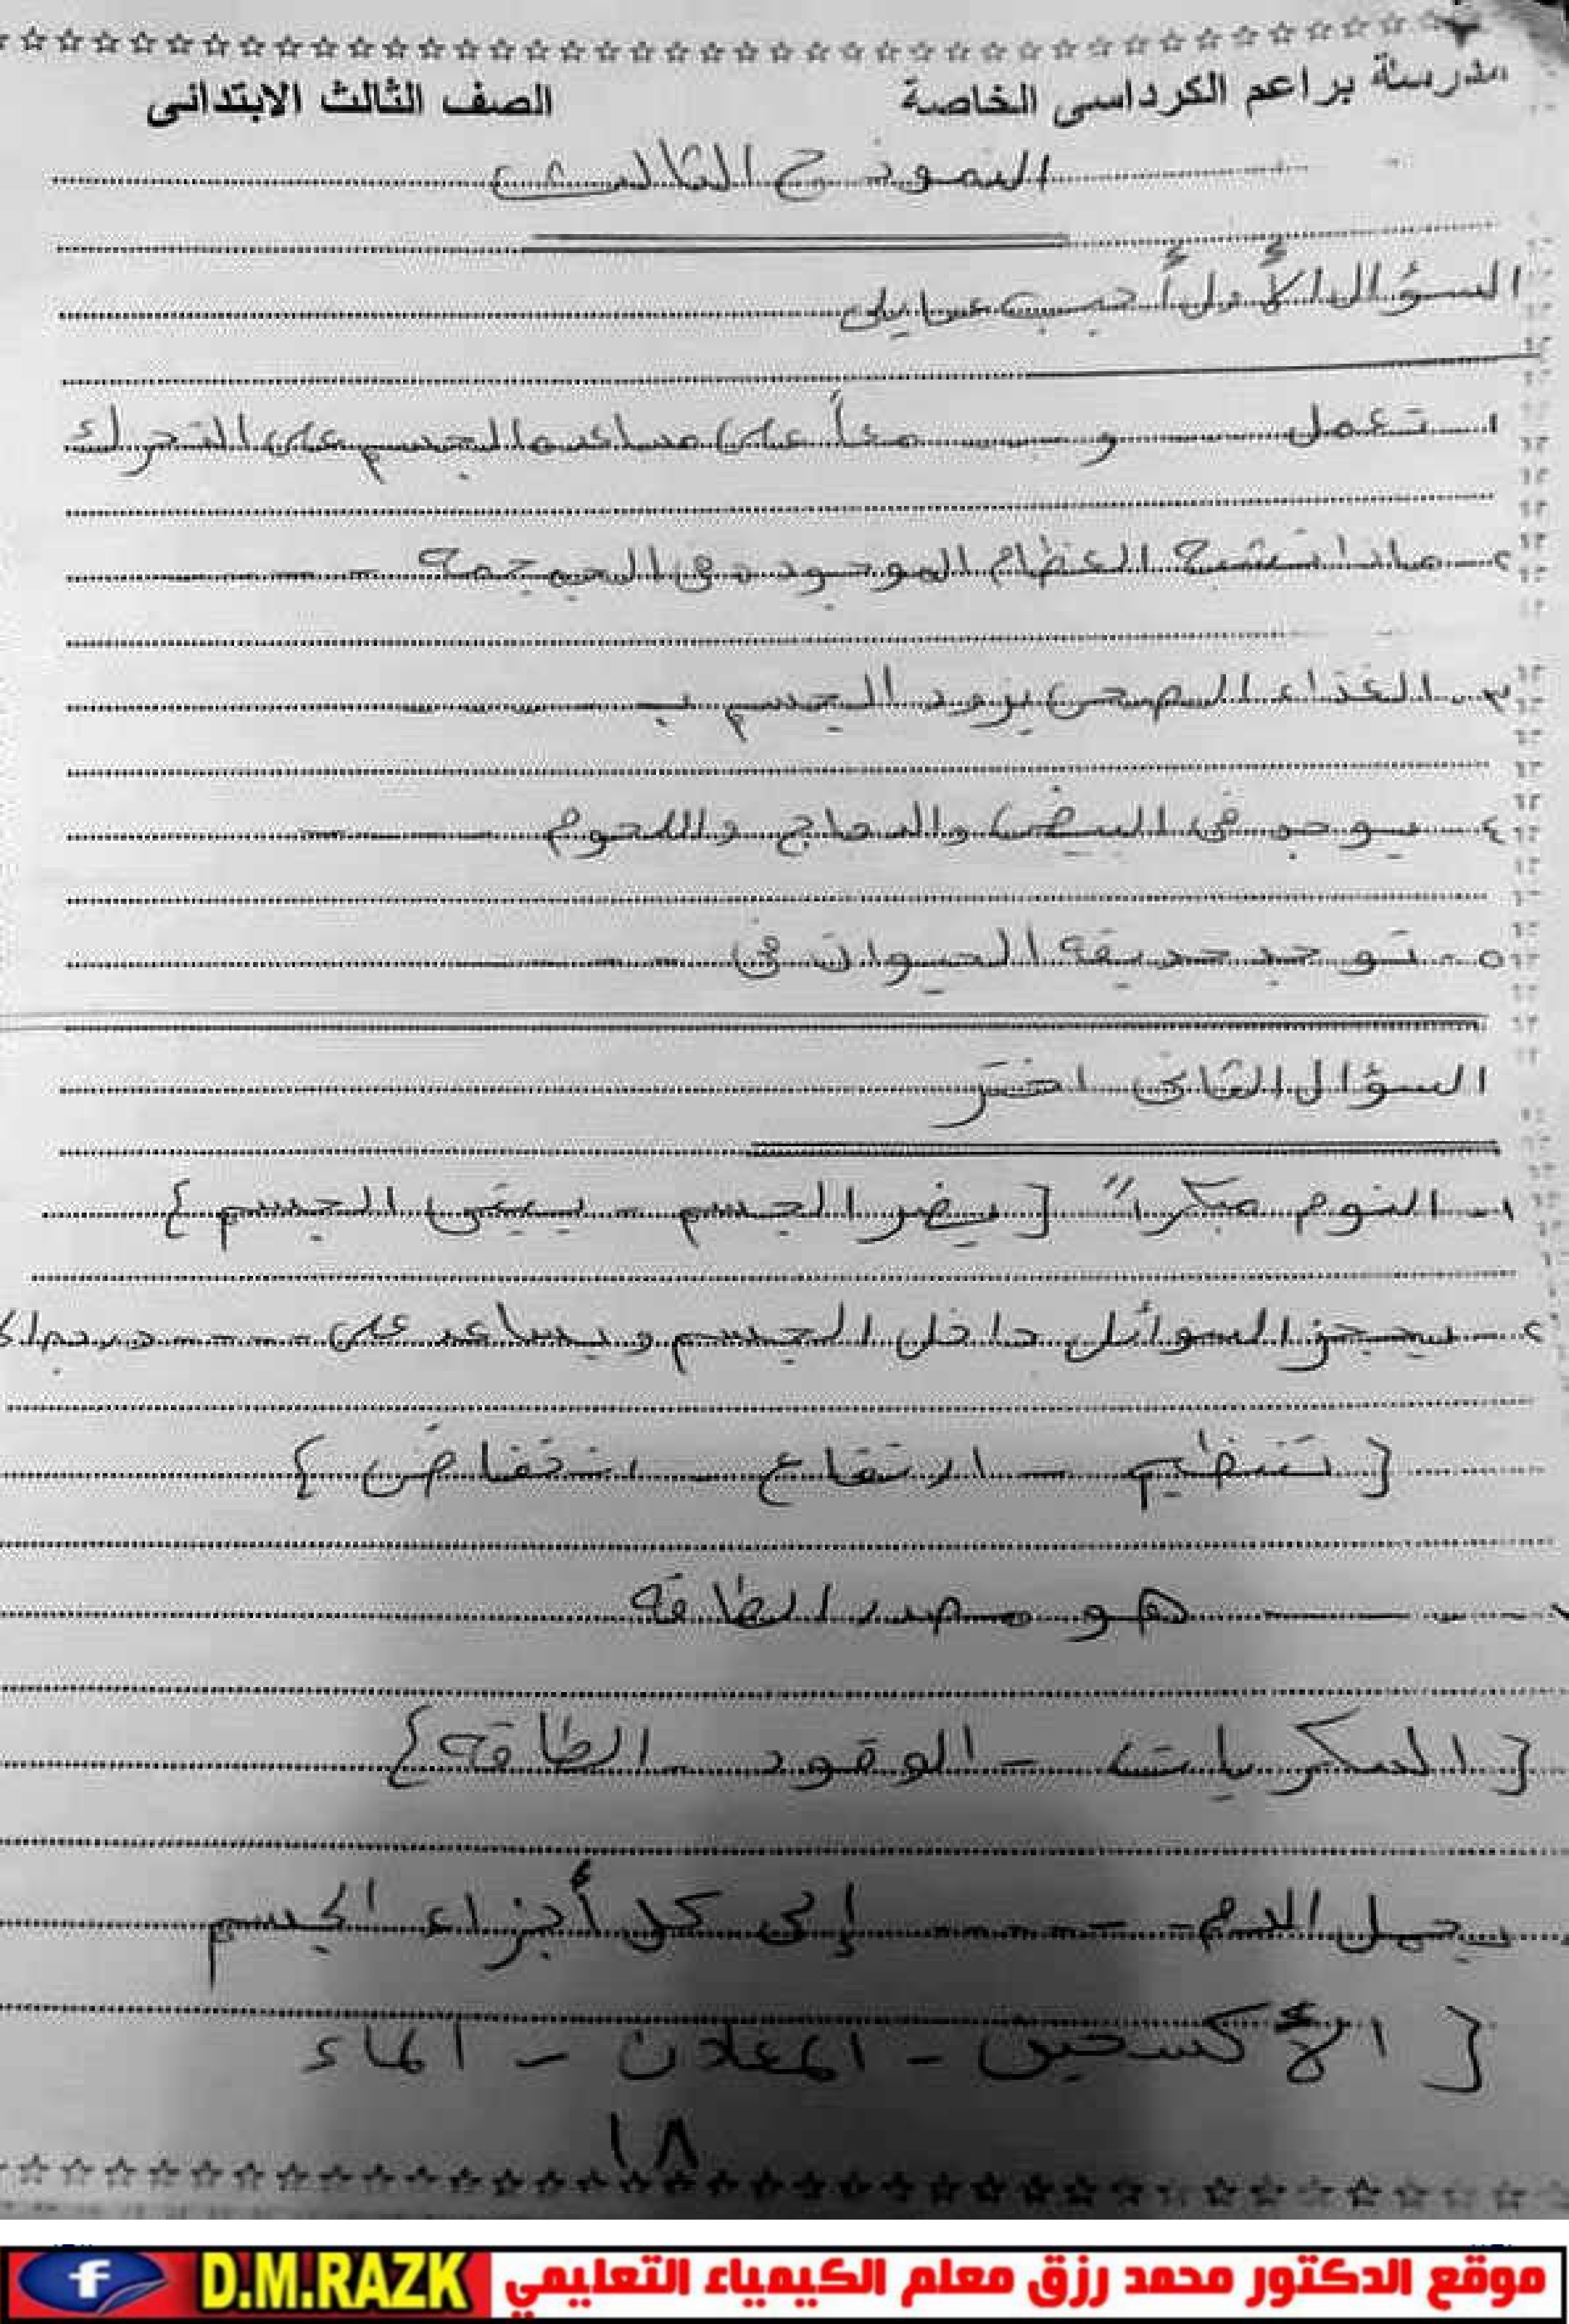 مدرسة براعم الكرداسى الخاصة الصف الثالث الابتدائى
النموذج الثالث
السؤال الأول أجب عما يلى
١ـ تعمل ـــ و ـــ معاً على مساعده الجسم على التحرك
٢ـ ماذا تشبه العظام الموجوده فى الجمجمة ـ ـ ـ
٣ـ الغذاء الصحى يزود الجسم بـ ـ ـ ـ
٤ـ يوجد فى البيض والدجاج واللحوم ـ ـ ـ
٥ـ توجد حديقة الحيوان فى ـ ـ ـ
السؤال الثانى اختر
١ـ النوم مبكراً [ يضر الجسم ـ الجسم }
٢ـ يحجز السوائل داخل الجسم ويساعد على ـ ـ ـ ـ
[ تنظيم ـ ارتفاع ـ انخفاض }
ـ ـ ـ هو مصدر الطاقة
[ السكريات ـ الوقود ـ الطاقه }
يحمل الدم ـ ـ ـ ـ إلى كل أجزاء الجسم
[ الأكسجين ـ المعادن ـ الماء
١٨
D.M.RAZK موقع الدكتور محمد رزق معلم الكيمياء التعليمي